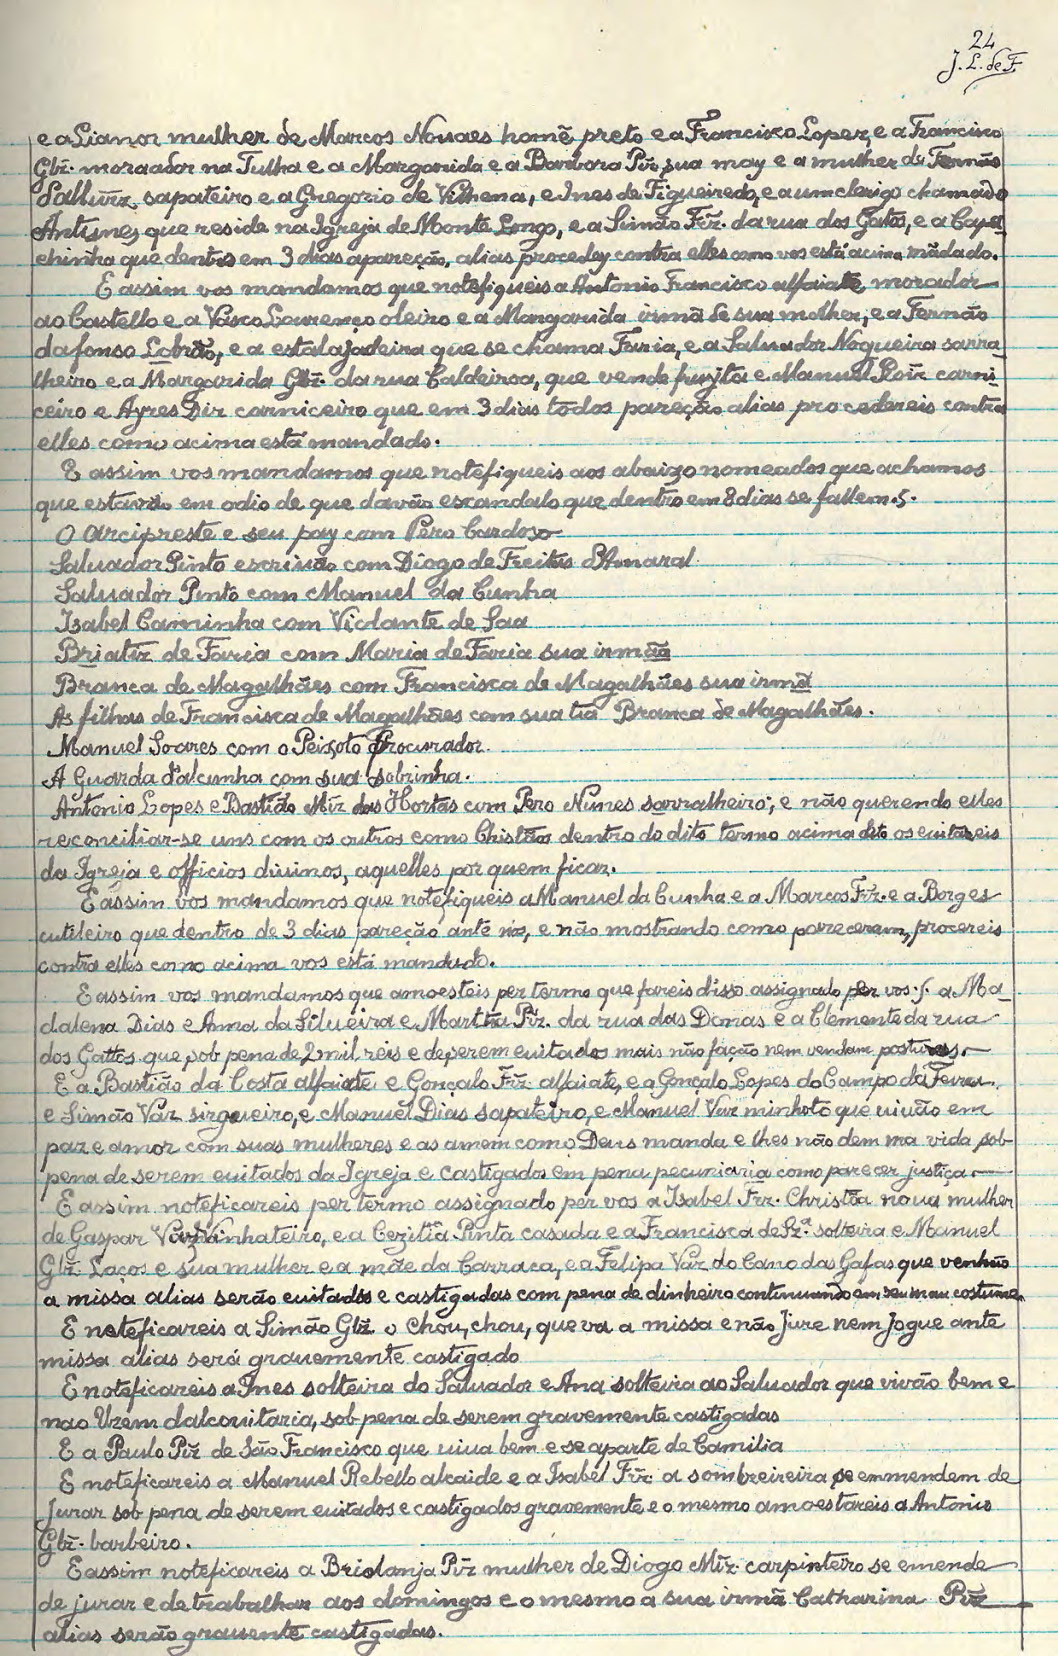 24
J. L. de F.
e a Lianor mulher de Marcos Novaes homẽ preto e a Francisco Lopez, e a Francisco
Glz̃. moraador na Tulha e a Margarida e a Barbora Pīz, sua may e a mulher de Fernão
sapateiro e a Gregorio de Vilhena, e Ines de Figueiredo, e a um clerigo chamado
Antunes, que reside na Igreja de Monte Longo, e a Simão Frz̃. da rua dos Gatos, e a Cape
chinha que dentro em 3 dias apareção, alias procedey contra elles como vos está acima mãdado.
E assim vos mandamos que notefiqueis a Antonio Francisco alfaiate morador
ao Castello e a Vasco Lourenço oleiro e a Margarida irmã de sua molher, e a Fernão
dafonso Lobrão, e a estalajadeira que se chama Faria, e a Saluador Nogueira sarra_
lheiro e a Margarida Glz̃. da rua Caldeiroa, que vende fruyta e Manuel Roiz carni_
ceiro e Ayres Dir carniceiro que em 3 dias todos pareção alias procedereis contra
elles como acima está mandado.
E assim vos mandamos que notefiqueis aos abaixo nomeados que achamos
que estavão em odio de que davão escandalo que dentro em 8 dias se fallem .s.
O Arcipreste e seu pay com Pero Cardoso
Saluador Pinto escrivão com Diogo de Freitas d'Amaral
Saluador Pinto com Manuel da Cunha
Isabel Caminha com Violante de Saa
Briatiz de Faria com Maria de Faria sua irmãa
Branca de Magalhães com Francisca de Magalhães sua irmã
As filhas de Francisca de Magalhães com sua tia Branca de Magalhães.
Manuel Soares com o Peixoto Procurador.
A Guarda d'alcunha com sua sobrinha.
Antonio Lopes e Bastião Mīz das Hortas com Pero Nunes sarralheiro; e não querendo elles
reconciliar-se uns com os outros como Chistãos dentro do dito termo acima dito os euitareis
da Igreja e officios diuinos, aquelles por quem ficar.
E assim vos mandamos que notefiqueis a Manuel da Cunha e a Marcos Frz̃. e a Borges
cutileiro que dentro de 3 dias pareção ante nos, e não mostrando como parecerem, procereis
contra elles como acima vos está mandado.
E assim vos mandamos que amoesteis per termo que fareis disso assignado per vos .s. a Ma_
dalena Dias e Anna da Silueira e Martha Pīz. da rua das Donas e a Clemente da rua
dos Gattos que sob pena de 2 mil reis e de serem euitados mais não fação nem vendam posturas.
E a Bastião da Costa alfaiate e Gonçalo Frz̃ alfaiate, e a Gonçalo Lopes do Campo da Feira
e Simão Vaz sirgueiro, e Manuel Dias sapateiro, e Manuel Vaz minhoto que uiuão em
paz e amor com suas mulheres e as amem como Deus manda e lhes não dem ma vida sob
pena de serem euitados da Igreja e castigados em pena pecuniaria como parecer justiça.
E assim noteficareis per termo assignado per vos a Isabel Frz. Christãa noua mulher
de Gaspar Vaz Vinhateiro, e a Cezilia Pinta casada e a Francisca de Sz.ª solteira e Manuel
Glz̃ Laços e sua mulher e a mãe da Carraca, e a Felipa Vaz do Cano das Gafas que venhão
a missa alias serão euitados e castigadas com pena de dinheiro continuando em seu mau costume.
E noteficareis a Simão Glz̃ o Chou, chou, que va a missa e não Jure nem Jogue ante
missa alias será grauemente castigado
E noteficareis a Ines solteira do Saluador e Ana solteira ao Saluador que vivão bem e
nao Uzem dalcouitaria, sob pena de serem gravemente castigadas
E a Paulo Pīz de São Francisco que uiua bem e se aparte de Camilia
E noteficareis a Manuel Rebello alcaide e a Isabel Frz̃ a sombreireira se emmendem de
Jurar sob pena de serem euitados e castigados gravemente e o mesmo amoestareis a Antonio
Glz̃. barbeiro.
E assim noteficareis a Briolanja Pīz mulher de Diogo Mīz. carpinteiro se emende
de jurar e de trabalhar aos domingos e o mesmo a sua irmã Catharina Pīz
alias serão grauente castigadas.